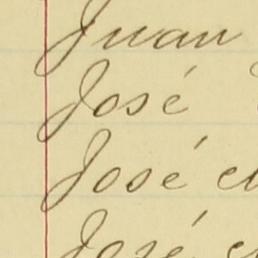 Juan
José
José
José